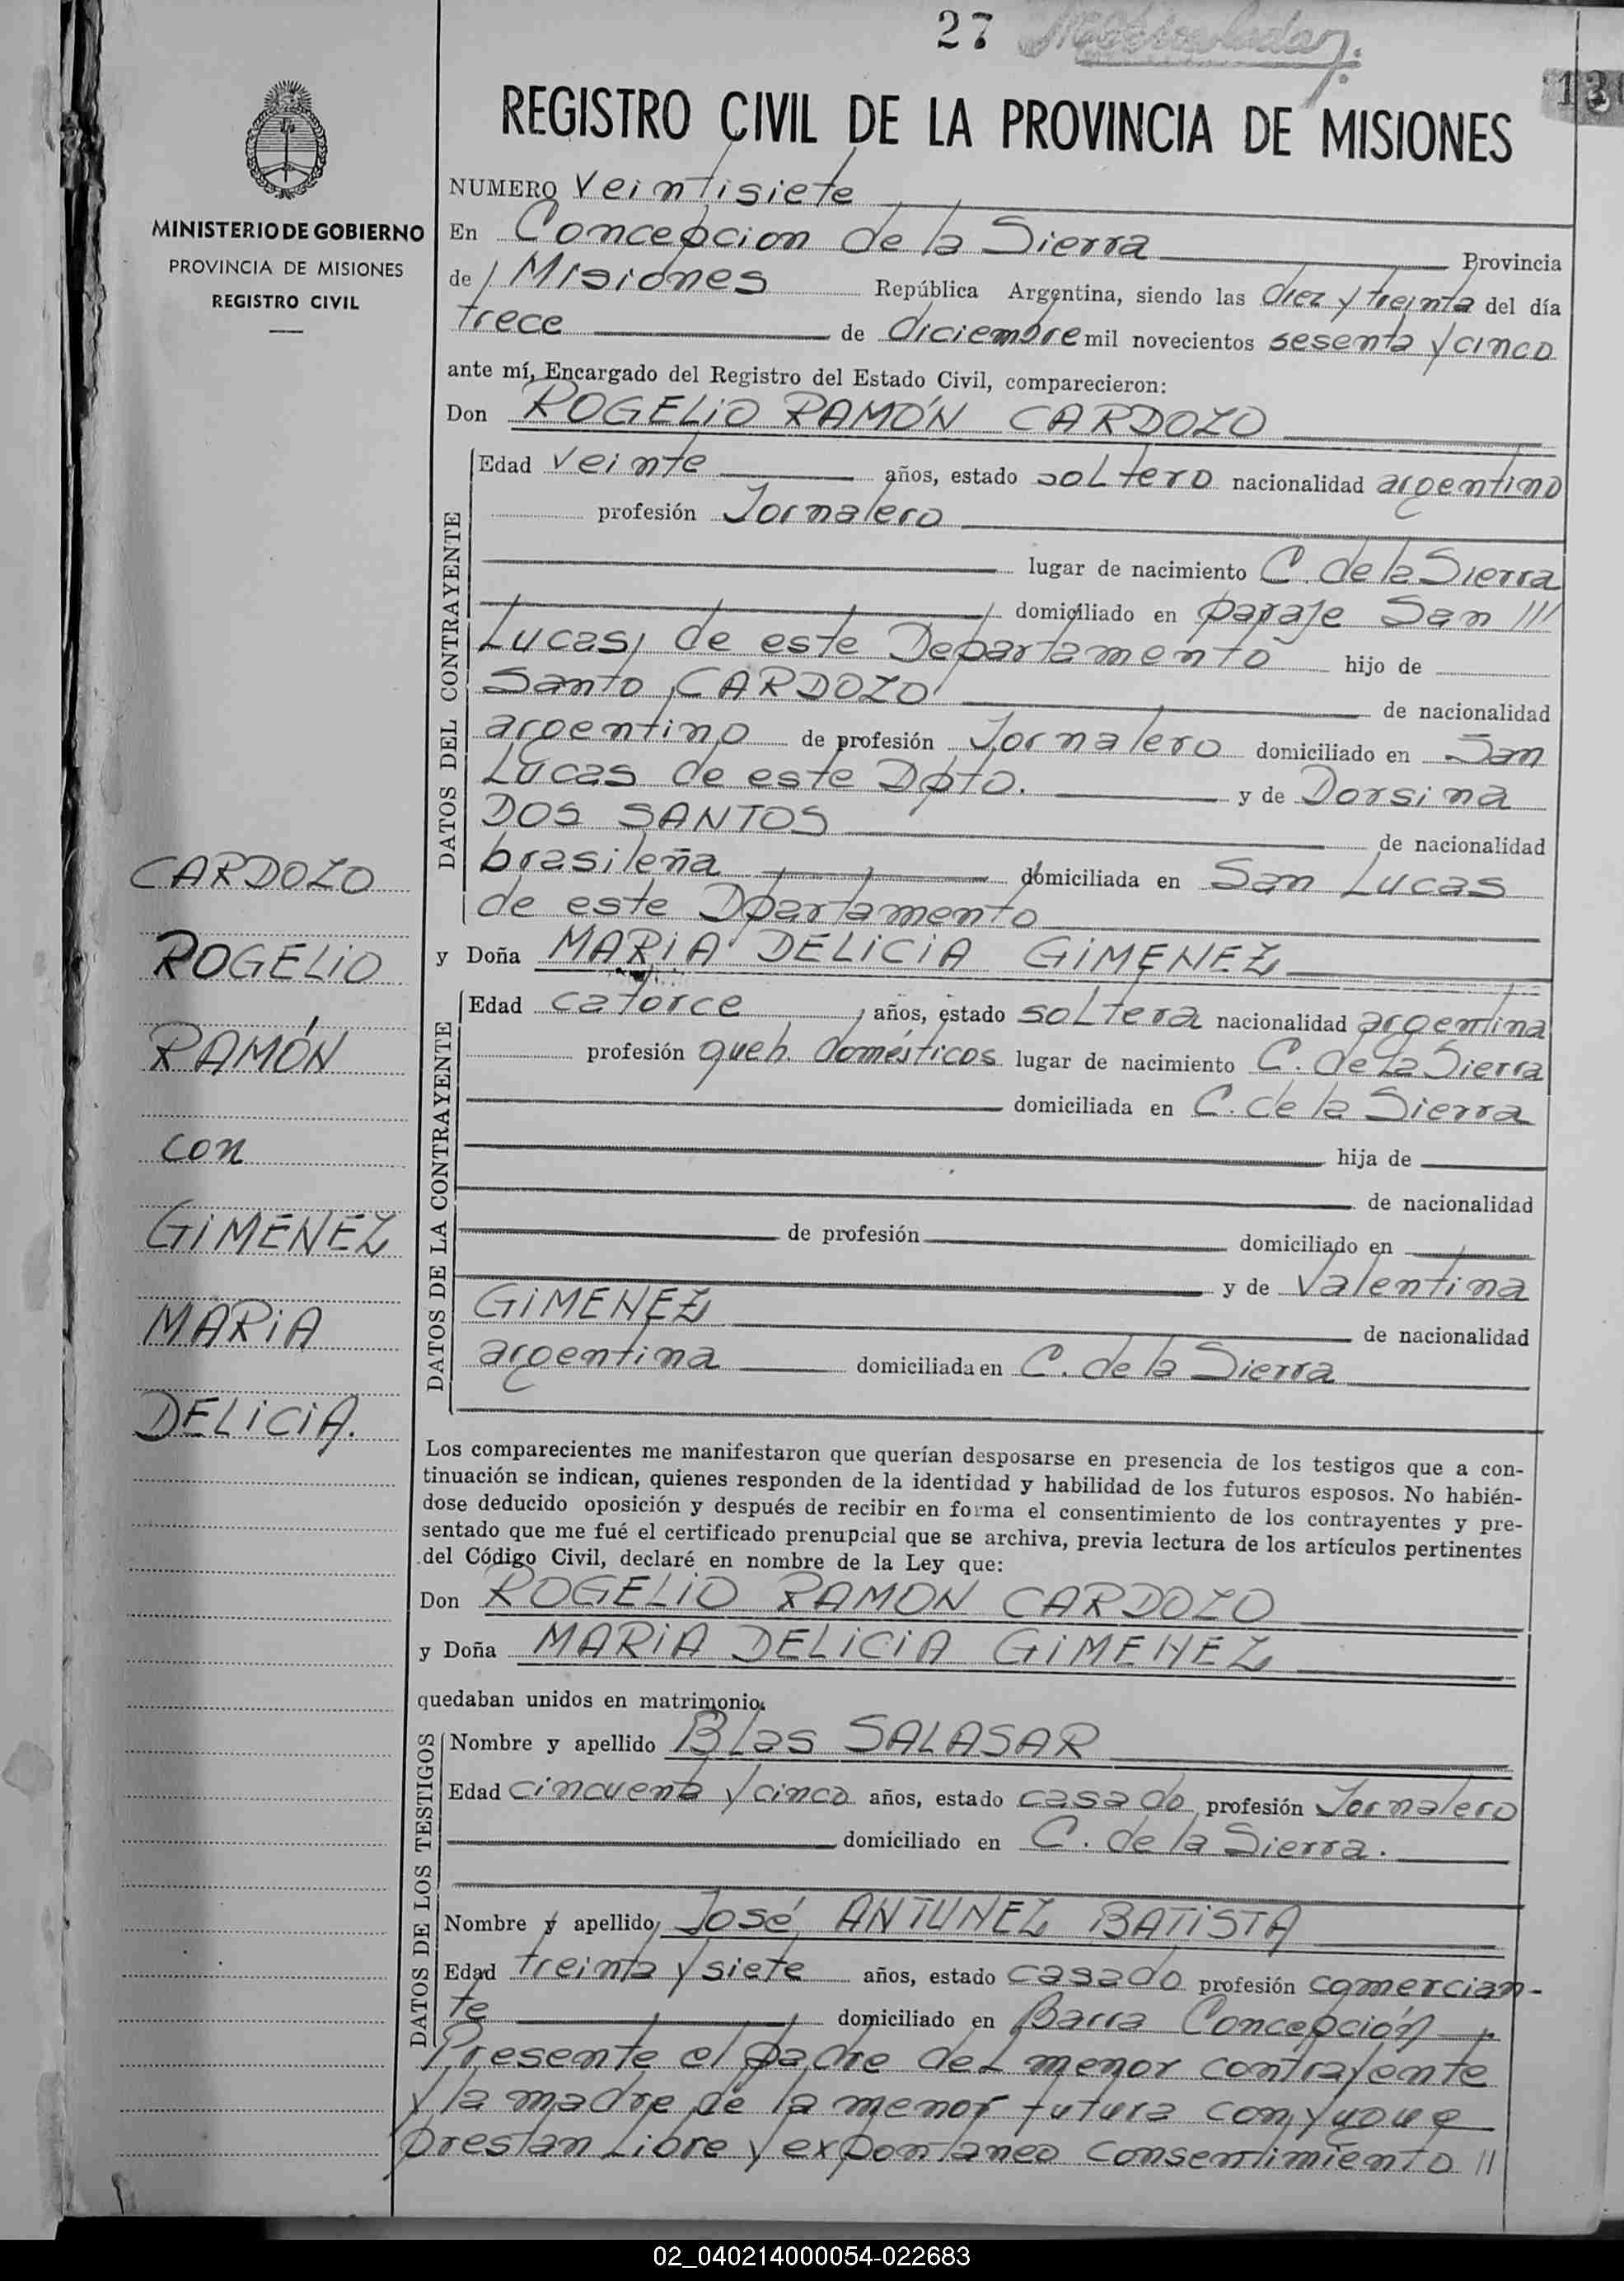 27
REGISTRO CIVIL DE LA PROVINCIA DE MISIONES
MINISTERIO DE GOBIERNO
PROVINCIA DE MISIONES
REGISTRO CIVIL
CARDOZO
ROGELIO
RAMÓN
con
GIMENEZ
MARIA
DELICIA.
NUMERO Veintisiete
En Concepcion de la Sierra Provincia
de Misiones República Argentina, siendo las diez y treinta del día
trece de diciembre mil novecientos sesenta y cinco
ante mí, Encargado del Registro del Estado Civil, comparecieron:
Don ROGELIO RAMÓN CARDOZO
DATOS DEL CONTRAYENTE
Edad veinte años, estado soltero nacionalidad argentino
profesión Jornalero
lugar de nacimiento C. de la Sierra
domiciliado en paraje San ///
Lucas, de este Departamento hijo de
Santo CARDOZO de nacionalidad
argentino de profesión Jornalero domiciliado en San
Lucas de este Dpto. y de Dorsina
DOS SANTOS de nacionalidad
brasileña domiciliada en San Lucas
de este Dpartamento
y Doña MARIA DELICIA GIMENEZ
DATOS DE LA CONTRAYENTE
Edad catorce años, estado soltera nacionalidad argentina
profesión queh. domésticos lugar de nacimiento C. de la Sierra
domiciliada en C. de la Sierra
hija de
de nacionalidad
de profesión domiciliado en
y de Valentina
GIMENEZ de nacionalidad
argentina domiciliada en C. de la Sierra
Los comparecientes me manifestaron que querían desposarse en presencia de los testigos que a con-
tinuación se indican, quienes responden de la identidad y habilidad de los futuros esposos. No habién-
dose deducido oposición y después de recibir en forma el consentimiento de los contrayentes y pre-
sentado que me fué el certificado prenupcial que se archiva, previa lectura de los artículos pertinentes
del Código Civil, declaré en nombre de la Ley que:
Don ROGELIO RAMON CARDOZO
y Doña MARIA DELICIA GIMENEZ
quedaban unidos en matrimonio.
DATOS DE LOS TESTIGOS
Nombre y apellido Blas SALASAR
Edad cincuenta y cinco años, estado casado profesión Jornalero
domiciliado en C. de la Sierra.
Nombre y apellido José ANTUNEZ BATISTA
Edad treinta y siete años, estado casado profesión comercian-
te domiciliado en Barra Concepción
Presente el padre del menor contrayente
y la madre de la menor futura conyugue
prestan libre y expontaneo consentimiento //
02_040214000054-022683